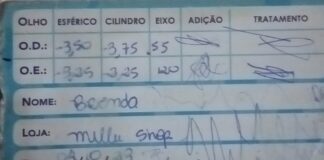 OLHO ESFÉRICO CILINDRO EIXO ADIÇÃO TRATAMENTO
O.D.: -3,50 -3,75 55
O.E.: -3,25 -2,25 120
NOME: Brenda
LOJA: Millu Shop